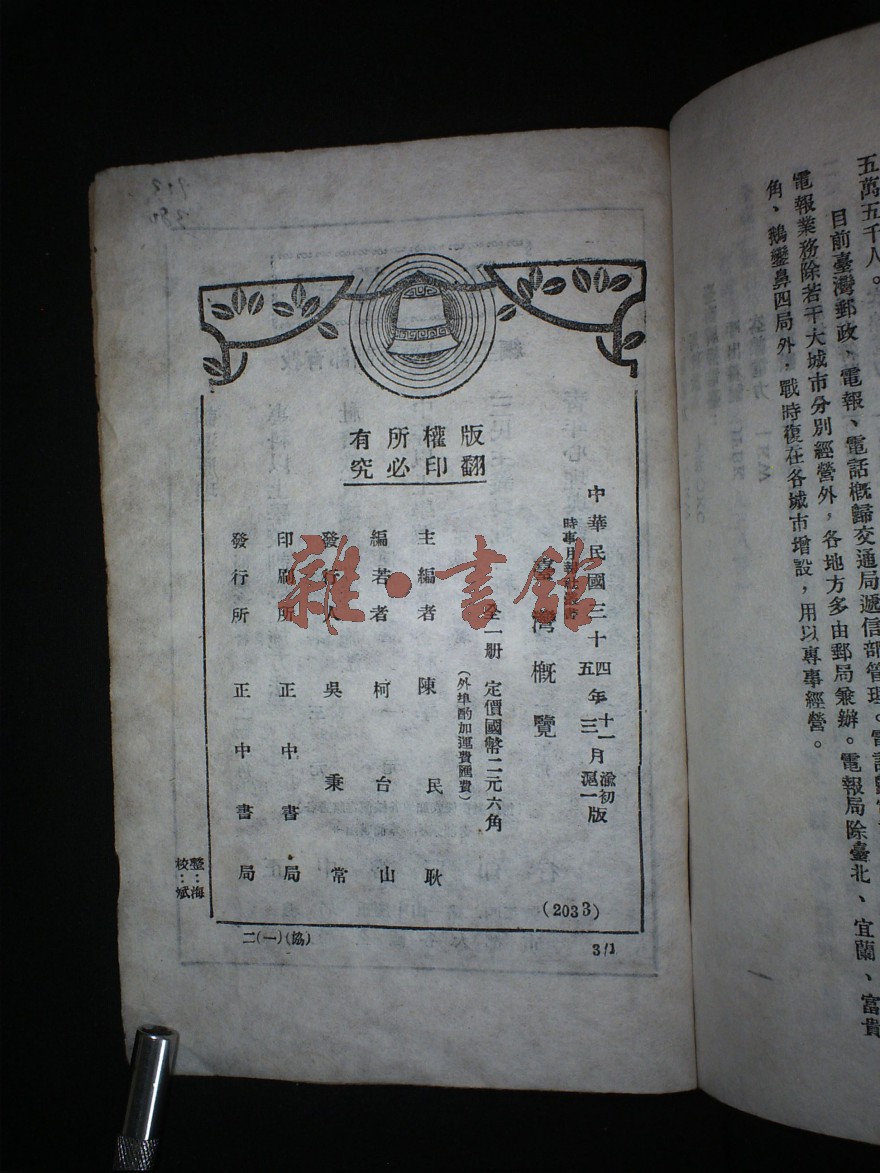 五萬五千人。
目前臺灣郵政、電報、電話概歸交通局遞信部管理。電話
電報業務除若干大城市分別經營外，各地方多由郵局兼辦。電報局除臺北、宜蘭、富貴
角、鵝鑾鼻四局外，戰時復在各城市增設，用以專事經營。
版權所有
翻印必究
中華民國三十四年十一月渝初版
五年三月滬一版
時事月報社叢書
臺灣概覽
全一册 定價國幣二元六角
(外埠酌加運費匯費)
主編者 陳民耿
編著者 柯台山
發行人 吳秉常
印刷所 正中書局
發行所 正中書局
(2033)
整:海
校:斌
二(一)(協)
3/1
雜·書館